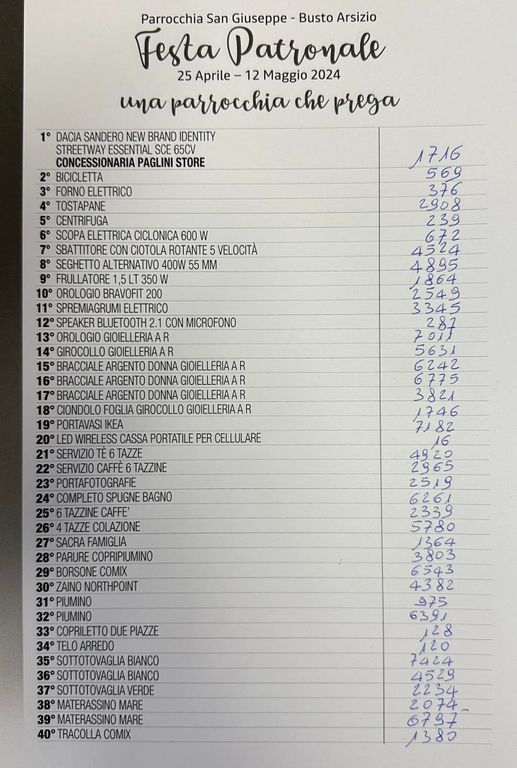 Parrocchia San Giuseppe - Busto Arsizio
Festa Patronale
25 Aprile – 12 Maggio 2024
una parrocchia che prega
1° DACIA SANDERO NEW BRAND IDENTITY
STREETWAY ESSENTIAL SCE 65CV
CONCESSIONARIA PAGLINI STORE 1716
2° BICICLETTA 569
3° FORNO ELETTRICO 376
4° TOSTAPANE 2908
5° CENTRIFUGA 239
6° SCOPA ELETTRICA CICLONICA 600 W 672
7° SBATTITORE CON CIOTOLA ROTANTE 5 VELOCITÀ 4524
8° SEGHETTO ALTERNATIVO 400W 55 MM 4895
9° FRULLATORE 1,5 LT 350 W 1864
10° OROLOGIO BRAVOFIT 200 2549
11° SPREMIAGRUMI ELETTRICO 3345
12° SPEAKER BLUETOOTH 2.1 CON MICROFONO 287
13° OROLOGIO GIOIELLERIA A R 7011
14° GIROCOLLO GIOIELLERIA A R 5631
15° BRACCIALE ARGENTO DONNA GIOIELLERIA A R 6242
16° BRACCIALE ARGENTO DONNA GIOIELLERIA A R 6775
17° BRACCIALE ARGENTO DONNA GIOIELLERIA A R 3821
18° CIONDOLO FOGLIA GIROCOLLO GIOIELLERIA A R 1746
19° PORTAVASI IKEA 7182
20° LED WIRELESS CASSA PORTATILE PER CELLULARE 16
21° SERVIZIO TÈ 6 TAZZE 4920
22° SERVIZIO CAFFÈ 6 TAZZINE 2965
23° PORTAFOTOGRAFIE 2519
24° COMPLETO SPUGNE BAGNO 6261
25° 6 TAZZINE CAFFE' 2339
26° 4 TAZZE COLAZIONE 5780
27° SACRA FAMIGLIA 1364
28° PARURE COPRIPIUMINO 3803
29° BORSONE COMIX 6543
30° ZAINO NORTHPOINT 4382
31° PIUMINO 975
32° PIUMINO 6391
33° COPRILETTO DUE PIAZZE 128
34° TELO ARREDO 120
35° SOTTOTOVAGLIA BIANCO 7424
36° SOTTOTOVAGLIA BIANCO 4529
37° SOTTOTOVAGLIA VERDE 2234
38° MATERASSINO MARE 2074
39° MATERASSINO MARE 6797
40° TRACOLLA COMIX 1380